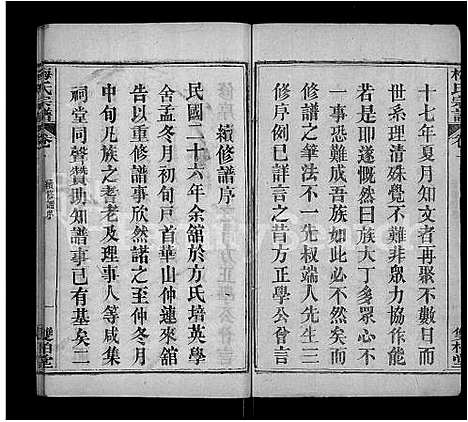 梅氏宗譜 卷
十七年夏月知文者再聚不數
月清洙殊覺不難非眾力
於是即遂慨然曰族大丁多眾心不
一事恐難成吾族如此必不然矣而
修譜之筆法不一先叔端人先生三
修序例已詳言之方正學公曾言
續修譜序
民國二十六年余舘於方氏培英學
舍孟冬月初旬戶首華山仲連來舘
告以重修譜事欣然諾之至仲冬月
中旬凡族之耆老及理事人等咸集
祠堂同聲贊助知譜事已有基矣二
梅氏宗譜 卷一 續修譜序 一 雙柏堂